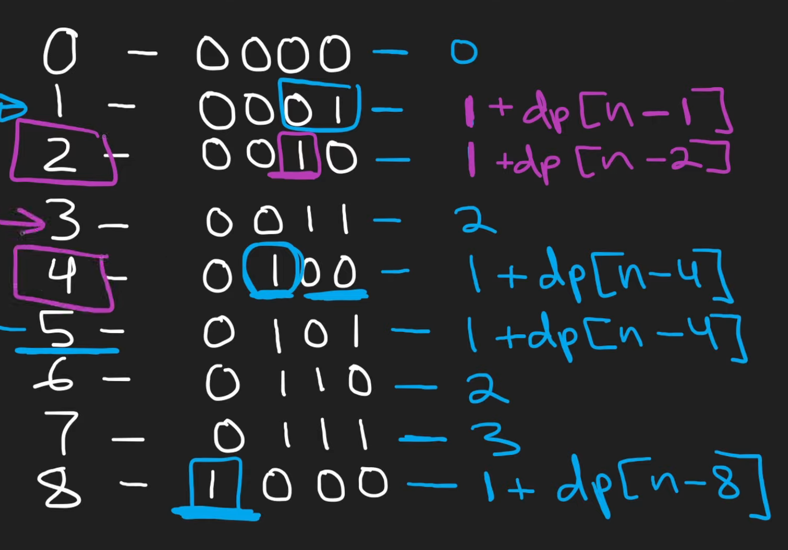 0 - 0000 - 0
1 - 0001 - 1 + dp[n-1]
2 - 0010 - 1 + dp[n-2]
3 - 0011 - 2
4 - 0100 - 1 + dp[n-4]
5 - 0101 - 1 + dp[n-4]
6 - 0110 - 2
7 - 0111 - 3
8 - 1000 - 1 + dp[n-8]